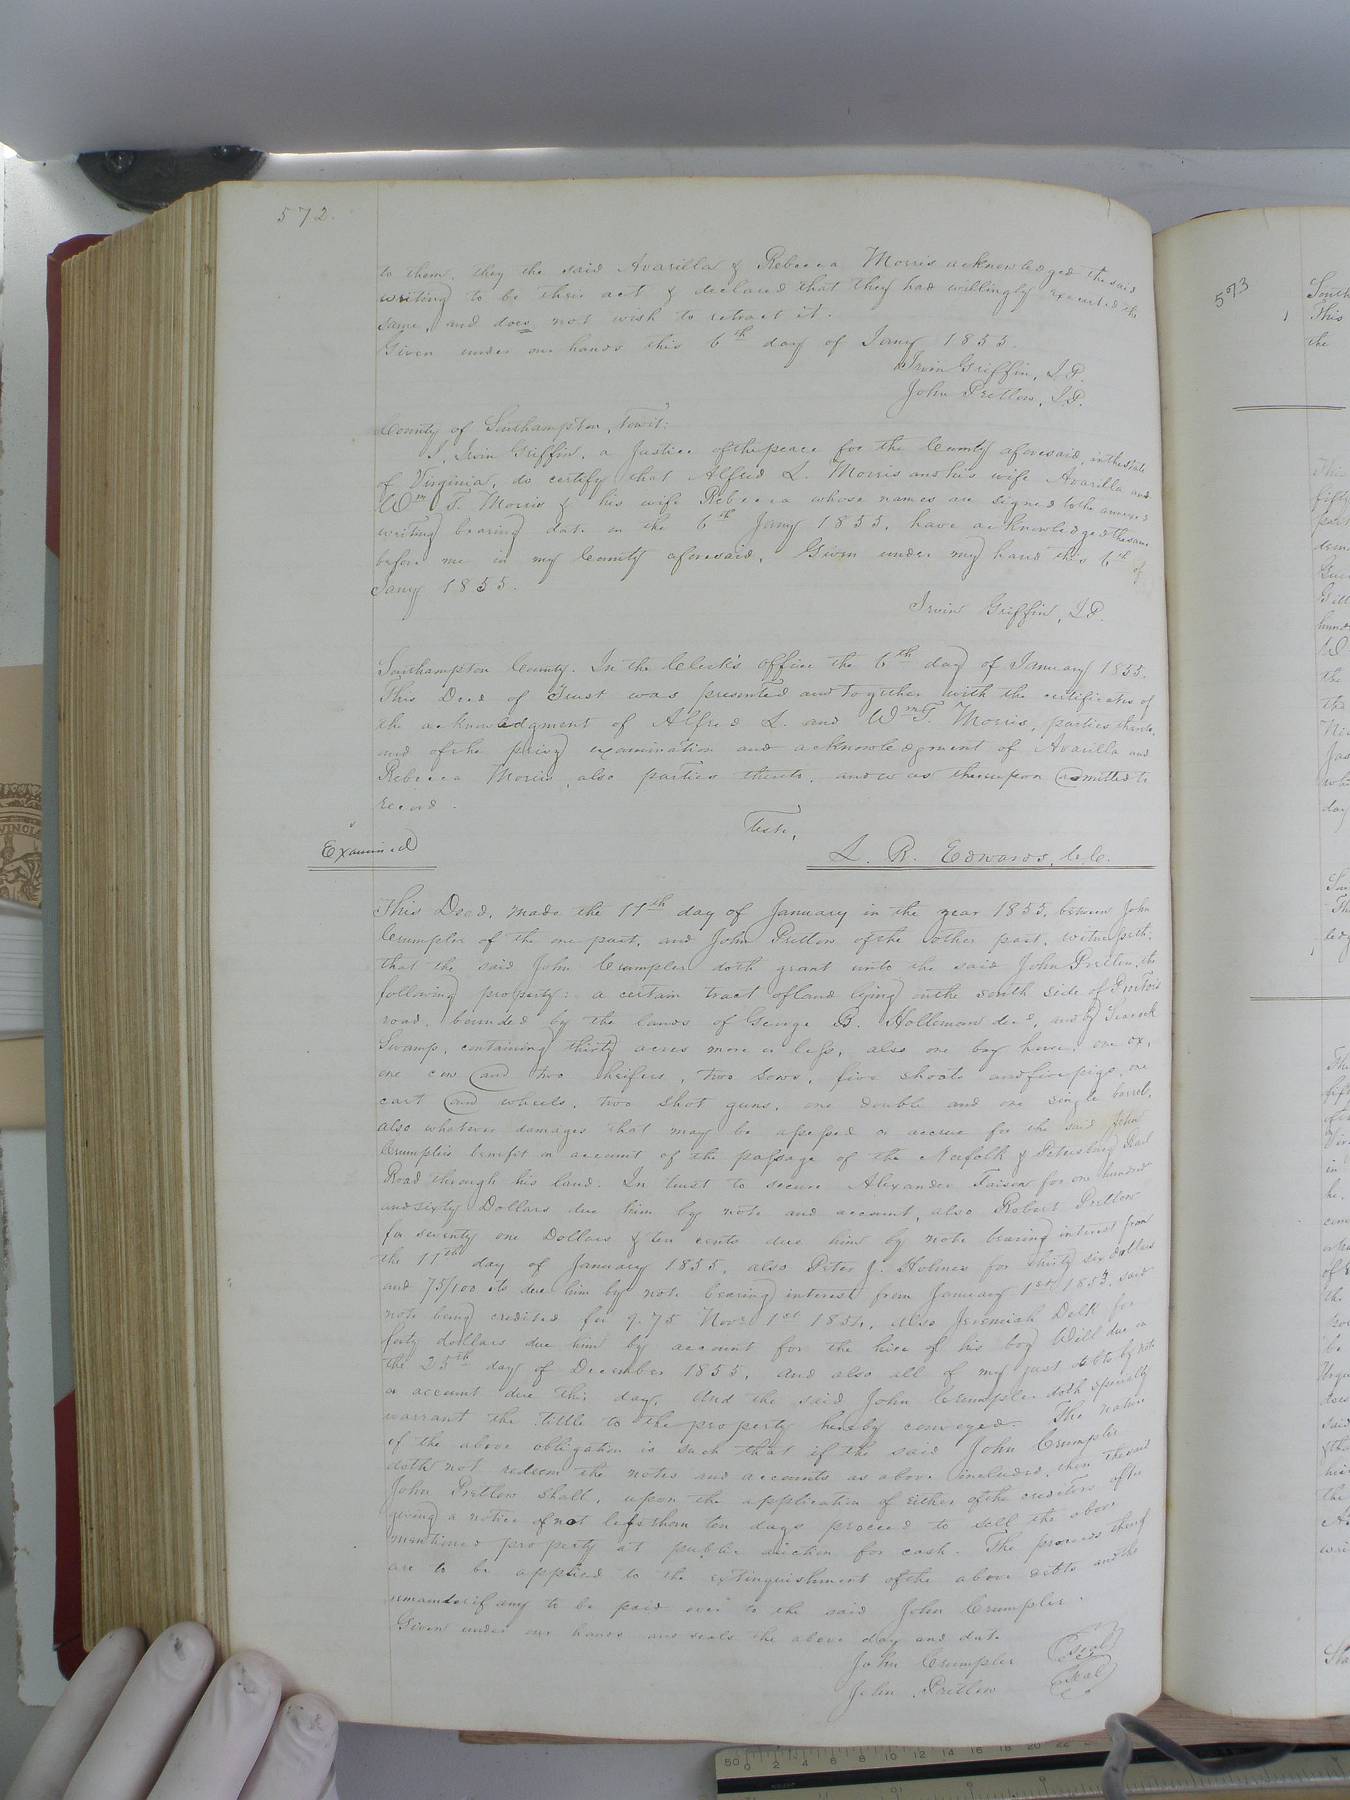 572.
to them, they the said Avarilla & Rebecca Morris acknowledged the said
writing to be their act & declared that they had willingly executed the
same, and does not wish to retract it.
Given under our hands this 6th day of Jany 1855.
Irvin Griffin, J.P.
John Pretlow, J.P.
County of Southampton, Towit:
I, Irvin Griffin, a Justice of the peace for the County aforesaid, in the state
of Virginia, do certify that Alfred L. Morris and his wife Avarilla and
Wm T. Morris & his wife Rebecca whose names are signed to the annexed
writing bearing date on the 6th Jany 1855, have acknowledged the same
before me in my County aforesaid. Given under my hand this 6th of
Jany 1855.
Irvin Griffin, J.P.
Southampton County. In the Clerk's office the 6th day of January 1855.
This Deed of Trust was presented and together with the certificates of
the acknowledgment of Alfred L. and Wm T. Morris, parties thereto,
and of the privy examination and acknowledgment of Avarilla and
Rebecca Morris, also parties thereto, and was thereupon admitted to
record.
Teste,
Examined
L. R. Edwards, C.C.
This Deed, made the 11th day of January in the year 1855, between John
Crumpler of the one part, and John Pretlow of the other part, witnesseth:
that the said John Crumpler doth grant unto the said John Pretlow, the
following property: a certain tract of land lying on the south side of
road, bounded by the lands of George B. Holleman decd, and by
Swamp, containing thirty acres more or less, also one bay horse, one ox,
one cow and two heifers, two sows, five shoats and five pigs, one
cart and wheels, two shot guns, one double and one single barrel,
also whatever damages that may be assessed or accrue for the said John
Crumpler's benefit on account of the passage of the Norfolk & Petersburg Rail
Road through his land. In trust to secure Alexander Faison for one hundred
and sixty Dollars due him by note and account, also Robert Pretlow
for seventy one Dollars & ten cents due him by note bearing interest from
the 11th day of January 1855, also Peter J. Holmes for thirty six dollars
and 75/100 cts due him by note bearing interest from January 1st 1853, said
note being credited for 9.75 Novr 1st 1854, also Jeremiah Delk for
forty dollars due him by account for the hire of his boy Will due on
the 25th day of December 1855, and also all of my just debts by note
or account due this day. And the said John Crumpler doth specially
warrant the tittle to the property hereby conveyed. The nature
of the above obligation is such that if the said John Crumpler
doth not redeem the notes and accounts as above included, then the said
John Pretlow shall, upon the application of either of the creditors after
giving a notice of not less than ten days proceed to sell the above
mentioned property at public auction for cash. The proceeds thereof
are to be applied to the extinguishment of the above debts and the
remainder if any to be paid over to the said John Crumpler.
Given under our hands and seals the above day and date
John Crumpler Seal
John Pretlow Seal
573
South
This
the